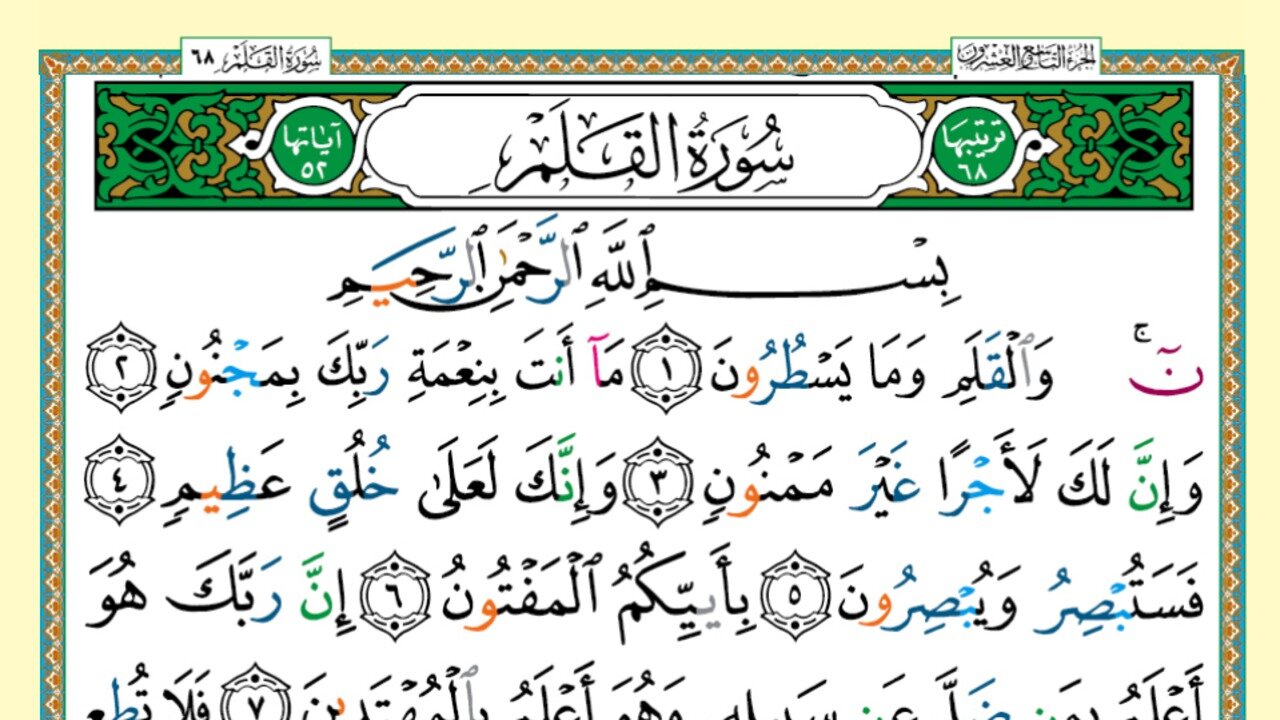 الجزء التاسع والعشرون
سورة القلم ٦٨
ترتيبها ٦٨
سُورَةُ القَلَمِ
آياتها ٥٢
بِسْمِ ٱللَّهِ ٱلرَّحْمَٰنِ ٱلرَّحِيمِ
نٓ ۚ وَٱلْقَلَمِ وَمَا يَسْطُرُونَ ١ مَآ أَنتَ بِنِعْمَةِ رَبِّكَ بِمَجْنُونٍ ٢
وَإِنَّ لَكَ لَأَجْرًا غَيْرَ مَمْنُونٍ ٣ وَإِنَّكَ لَعَلَىٰ خُلُقٍ عَظِيمٍ ٤
فَسَتُبْصِرُ وَيُبْصِرُونَ ٥ بِأَييِّكُمُ ٱلْمَفْتُونُ ٦ إِنَّ رَبَّكَ هُوَ
أَعْلَمُ بِمَن ضَلَّ عَن سَبِيلِهِ وَهُوَ أَعْلَمُ بِٱلْمُهْتَدِينَ ٧ فَلَا تُطِعِ